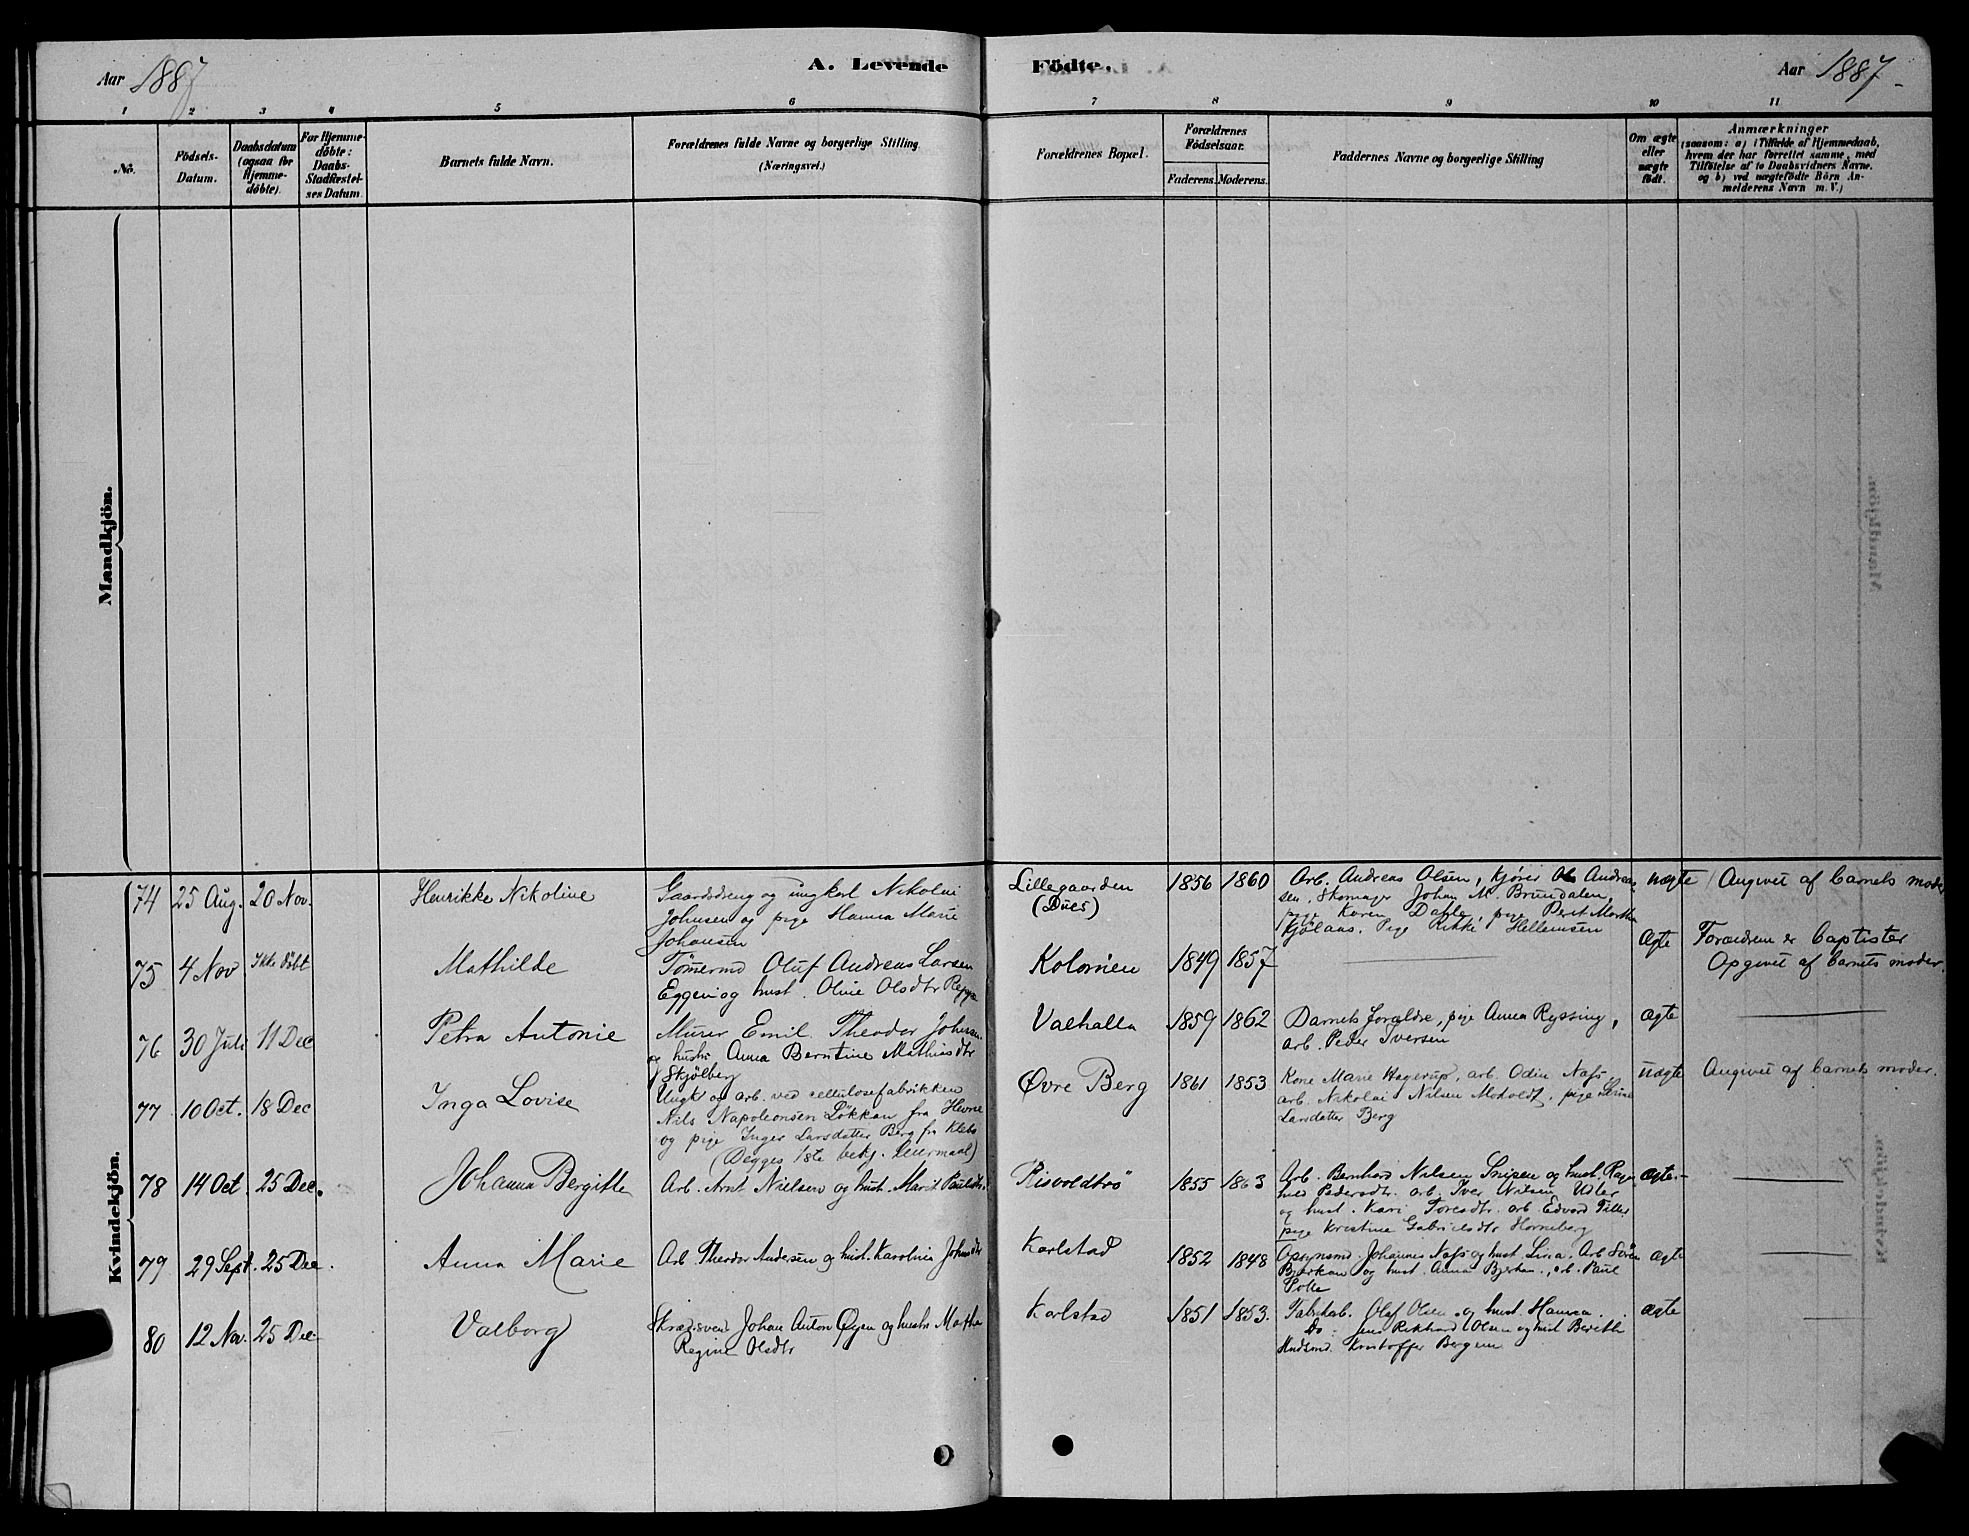 Aar 1887
A. Levende
Födte.
Aar 1887.
1 2 3 4 5 6 7 8 9 10 11
No.
Födsels-
Datum.
Daabsdatum
(ogsaa for
Hjemme-
döbte).
For Hjemme-
döbte:
Daabs-
Stadfæstel-
ses Datum.
Barnets fulde Navn.
Forældrenes fulde Navne og borgerlige Stilling
(Næringsvei.)
Forældrenes Bopæl.
Forældrenes
Födselsaar.
Faderens. Moderens.
Faddernes Navne og borgerlige Stilling
Om ægte
eller
uægte
födt.
Anmærkninger
(saasom: a) i Tilfælde af Hjemmedaab,
hvem der har forrettet samme, med
Tilföielse af to Daabsvidners Navne.
og b) ved uægtefödte Börn An-
melderens Navn m. V.)
Mandkjön.
Kvindekjön.
74 25 Aug. 20 Nov. Henrikke Nikoline
Gaardsdreng og ungkarl Nikolai
Johnsen og pige Hanna Marie
Johansen
Lillegaarden
(Dues)
1856 1860
Arb. Andreas Olsen, Kjører Ole Andrea-
sen, Skomager Johan M. Brundalen,
pige Karen Dahle, pige Berit Martha
Kjølaas. Pige Rikke Hellemsen
uægte
Angivet af barnets moder
75 4 Nov Ikke døbt Mathilde
Tømermd Oluf Andreas Larsen
Eggen og hust. Oline Olsdtr Reppe
Kolonien 1849 1857
Ægte
Forældrene er baptister
Opgivet af barnets moder.
76 30 Juli 11 Dec Petra Antonie
Murer Emil Theodor Johnsen
og hustr Anna Berntine Mathiasdtr
Skjølberg
Valhalla 1859 1862
Barnets forældre, pige Anna Ryssing,
arb. Peder Iversen
ægte
77 10 Oct. 18 Dec Inga Lovise
Ungk og arb. ved cellulosefabrikken
Nils Napoleonsen Løkkan fra Hevne
og pige Inger Larsdatter Berg fra Klebo
(Begges 1ste bekj. Leiermaal)
Øvre Berg 1861 1853
Kone Marie Hagerup, arb. Odin Næss,
arb. Nikolai Nilsen Moholdt, pige
Larsdatter Berg
Uægte
Angivet af barnets moder.
78 14 Oct. 25 Dec. Johanna Bergitte
Arb. Arnt Nielsen og hust. Marit Paulsdtr
Risvoldtrø 1855 1863
Arb. Bernhard Nilsen Snipen og hust.
Pedersdtr. arb. Iver Nilsen Udler
og hust. Kari Toresdtr. arb Edvard Tiller
pige Kristine Gabrielsdtr Horneberg
ægte
79 29 Sept. 25 Dec. Anna Marie
Arb. Theodor Andersen og hust. Karolina Johnsdtr
Karlstad 1852 1848
Opsynsmd. Johannes Næss og hust Lina, Arb Sören
Bjerkan og hust. Anna Bjerkan, arb. Paul
ægte
80 12 Nov. 25 Dec Valborg
Skrædsvend Johan Anton Øyen og hustr Martha
Regine Olsdtr
Karlstad 1851 1853.
Fabrikab. Oluf Olsen og hust Hanna.
Do. Rikhard Olsen og hust Bereth
Husmd Kristoffer Bergem
ægte